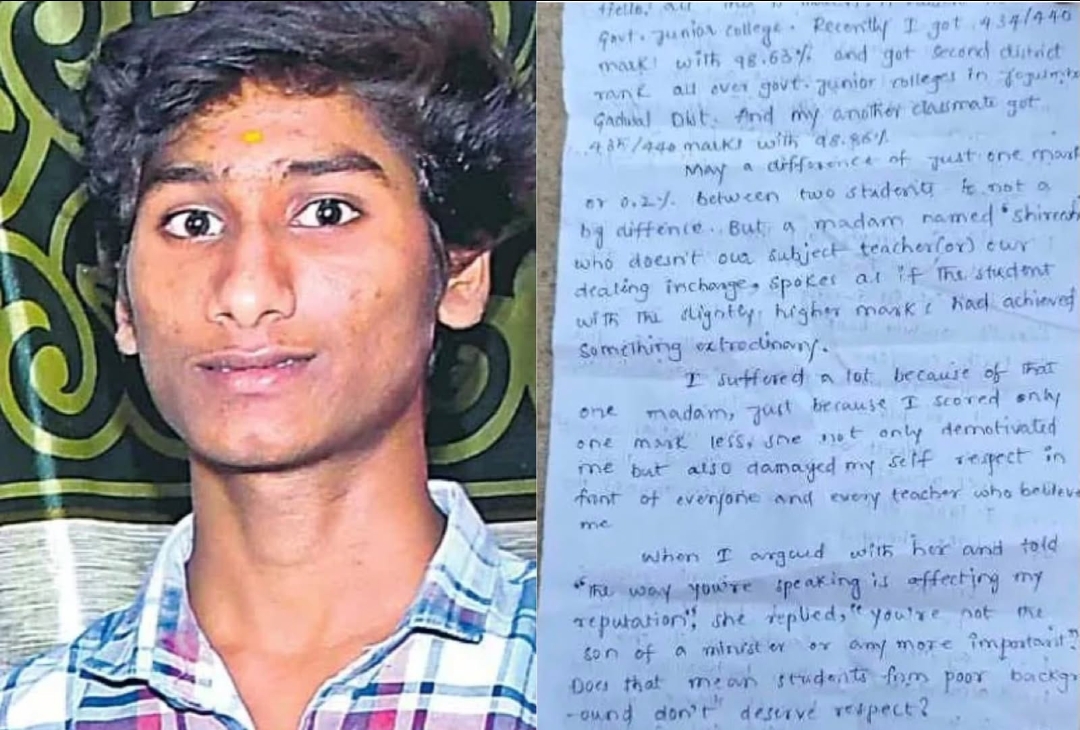 Hello, all this is
Govt. Junior college. Recently I got 434/440
mark: with 98.63% and got second district
rank all over govt. junior colleges in
Gadwal Dist. And my another classmate got
435/440 marks with 98.86%
May a difference of just one mark
or 0.2% between two students is not a
big diffence.. But a madam named "
who doesn't our subject teacher(or) our
dealing incharge, spokes as if the student
with the slightly higher marks had achieved
something extrodinary.
I suffered a lot because of that
one madam, just because I scored only
one mark less, she not only demotivated
me but also damayed my self respect in
font of everyone and every teacher who believe
me
When I argued with her and told
"The way you're speaking is affecting my
reputation", she replied, "you're not the
son of a minister or any more important"
Does that mean students from poor backgr
-ound don't deserve respect?